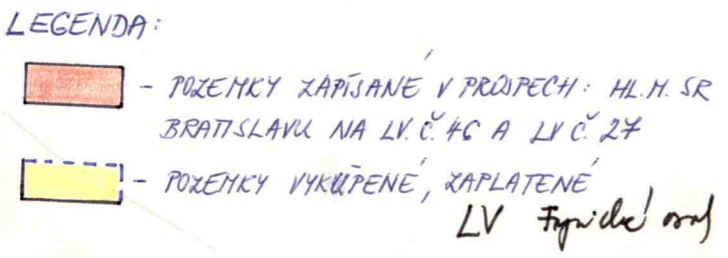 LEGENDA:
- POZEMKY ZAPÍSANÉ V PROSPECH: HL. M. SR
BRATISLAVU NA LV. Č. 46 A LV Č. 27
- POZEMKY VYKÚPENÉ, ZAPLATENÉ
LV Fyzické osob